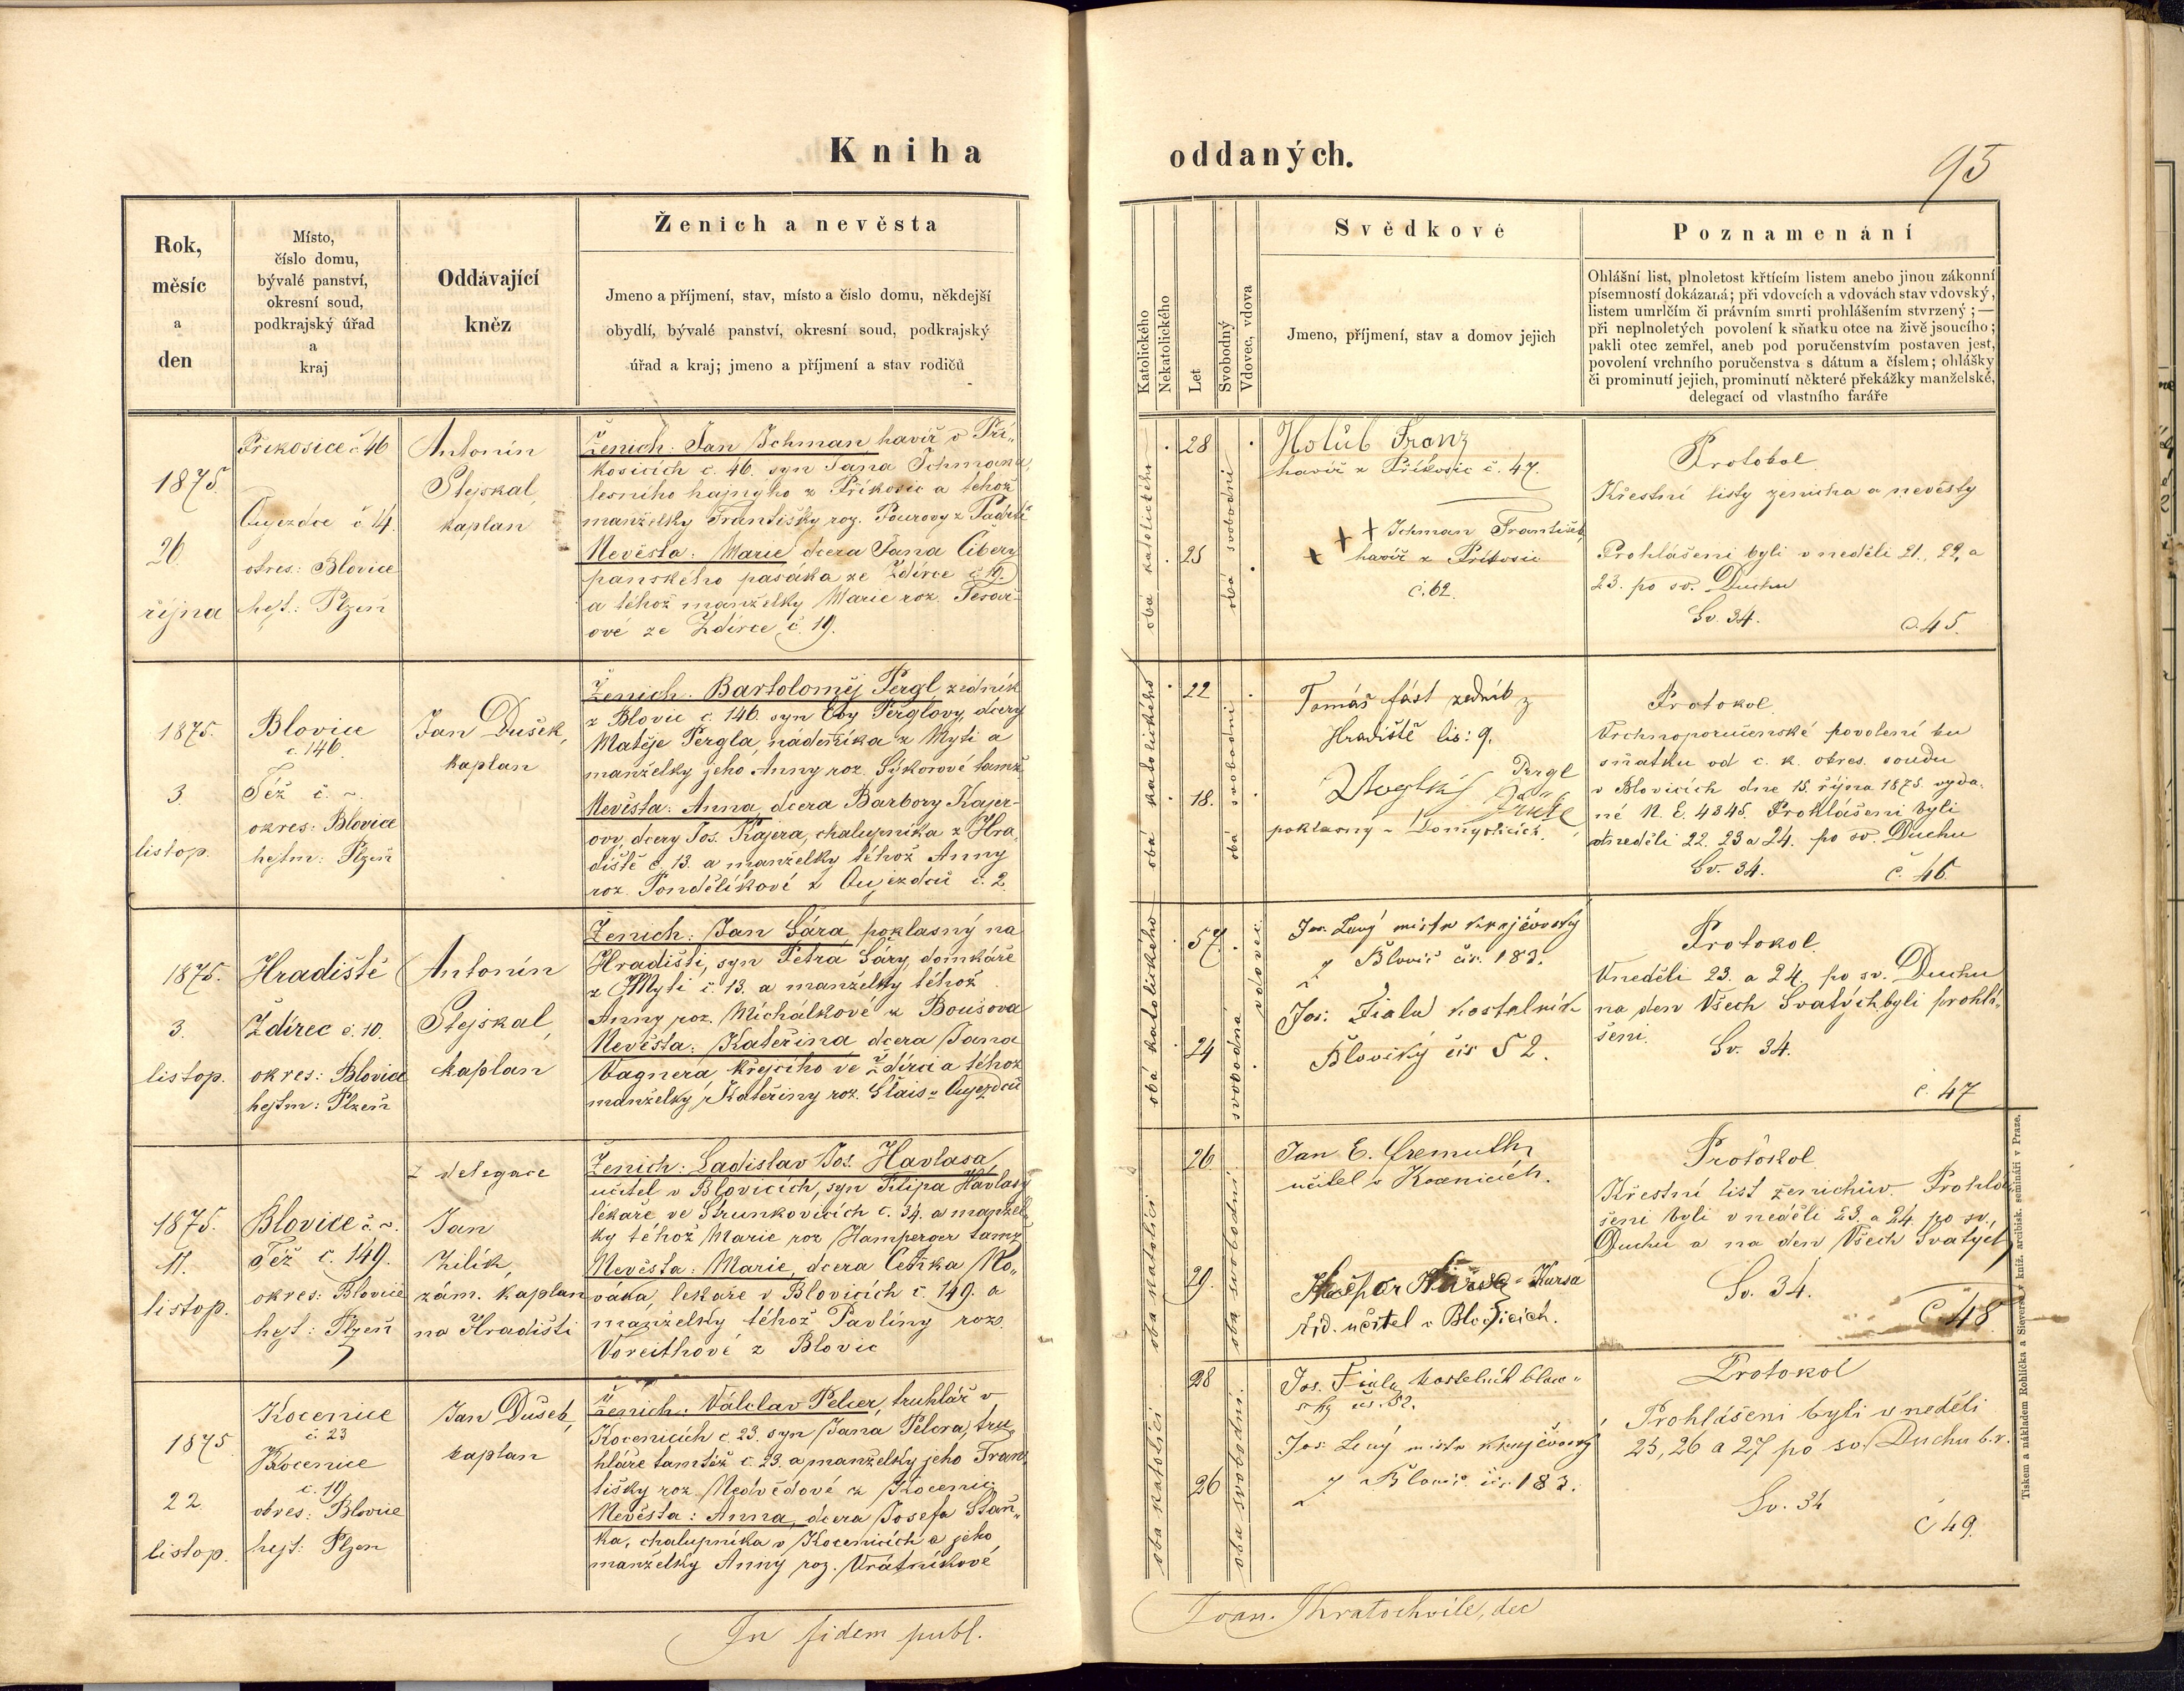 Kniha
oddaných.
95
Rok,
měsíc
a
den
Místo,
číslo domu,
bývalé panství,
okresní soud,
podkrajský úřad
a
kraj
Oddávající
kněz
Ženich a nevěsta
Jmeno a příjmení, stav, místo a číslo domu, někdejší
obydlí, bývalé panství, okresní soud, podkrajský
úřad a kraj; jmeno a příjmení a stav rodičů
Katolického
Nekatolického
Let
Svobodný
Vdovec, vdova
Svědkové
Jmeno, příjmení, stav a domov jejich
Poznamenání
Ohlášní list, plnoletost křtícím listem anebo jinou zákonní
písemností dokázaná; při vdovcích a vdovách stav vdovský,
listem umrlčím či právním smrti prohlášením stvrzený; —
při neplnoletých povolení k sňatku otce na živě jsoucího;
pakli otec zemřel, aneb pod poručenstvím postaven jest,
povolení vrchního poručenstva s dátum a číslem; ohlášky
či prominutí jejich, prominutí některé překážky manželské,
delegací od vlastního faráře
1875.
26
října
Příkosice č 46
Oujezdce č 14.
okres: Blovice
hejt.: Plzeň
Antonín
Stejskal,
kaplan
Ženich: Jan Ichman, havíř v Pří„
kosicích č. 46. syn Jana Ichmana,
lesního hajného z Příkosic a téhož
manželky Františky roz. Pourovy z Padrtě
Nevěsta: Marie dcera Jana Cibery
panského pasáka ze Ždírce č. 19.
a téhož manželky Marie roz. Tesař-
ové ze Ždírce č. 19.
oba katolického
28
25
oba svobodní
Holub Franz
havíř z Příkosic č. 47.
+ + + Ichman František
havíř z Příkosic
č. 62.
Protokol
Křestní listy ženicha a nevěsty
Prohlášeni byli v neděli 21., 22, a
23. po sv. Duchu
Sv. 34.
č. 45.
1875.
3.
listop.
Blovice
č. 146.
Též č. ~.
okres: Blovice
hejtm: Plzeň
Jan Dušek,
kaplan
Ženich: Bartoloměj Pergl, zedník
z Blovic č. 146. syn Evy Perglovy, dcery
Matěje Pergla, nádeníka z Myti a
manželky jeho Anny roz. Sýkorové tamž
Nevěsta: Anna, dcera Barbory Kajer-
ovy, dcery Jos. Kajera, chalupníka z Hra„
diště č. 13. a manželky téhož Anny
roz. Pondělíkové z Oujezdců č. 2.
oba katolického
22
18.
oba svobodní
Tomáš fást zedník z
Hradiště čis: 9.
Pergl
poklasny v Domyslicích.
Protokol.
Vrchnoporučenské povolení ku
sňatku od c. k. okres. soudu
v Blovicích dne 15. října 1875 vyda-
né N. E. 4345. Prohlášeni byli
v neděli 22. 23 a 24. po sv. Duchu
Sv. 34.
č. 46.
1875.
3.
listop.
Hradiště
Ždírec č. 10.
okres: Blovice
hejtm: Plzeň
Antonín
Stejskal,
kaplan
Ženich: Jan Sára, poklasný na
Hradišti, syn Petra Sáry, domkáře
z Myti č. 13. a manželky téhož
Anny roz. Michálkové z Boušova
Nevěsta: Kateřina dcera Jana
Vagnera, krejcího ve Ždírci a téhož
manželky Kateřiny roz. Slais z Oujezdců
oba katolického
57.
24
vdovec
svobodná
Jos. Lený mistr krejčovský
z Blovic čis. 183.
Jos: Fiala kostelník
Blovický čis 52.
Protokol.
V neděli 23. a 24. po sv. Duchu
na den Všech Svatých byli prohlá-
šeni. Sv. 34.
č. 47
1875.
11.
listop.
Blovice č. ~.
Též č. 149.
okres: Blovice
hejt: Plzeň
z delegace
Jan
Zilík,
zám. kaplan
na Hradišti
Ženich: Ladislav Jos. Havlasa,
učitel v Blovicích, syn Filipa Havlasy
lékaře ve Strunkovicích č. 34. a manžel„
ky téhož Marie roz Hamperger tamž
Nevěsta: Marie, dcera Čeňka No„
váka, lekaře v Blovicích č. 149. a
manželky téhož Pavlíny roz.
Voreithové z Blovic
oba katolíci
26
29.
oba svobodní
Jan E. Gremuth,
učitel v Kocenicích.
Kašpar Kursa
říd. učitel v Blovicích.
Protokol
Křestní list ženichův. Prohlá„
šeni byli v neděli 23. a 24. po sv.
Duchu a na den Všech Svatých
Sv. 34.
č 48
1875
22.
listop.
Kocenice
č. 23
Kocenice
č. 19
okres: Blovice
hejt: Plzen
Jan Dušek,
kaplan
Ženich: Válclav Pelcer, truhlář v
Kocenicích č. 23. syn Jana Pelcra, tru„
hláře tamtéž č. 23. a manželky jeho Fran„
tišky roz. Medvědové z Kocenic
Nevěsta: Anna, dcera Josefa Staň„
ka, chalupníka v Kocenicích a jeho
manželky Anny roz. Vrátníkové
oba katolíci
28
26
oba svobodní.
Jos. Fiala kostelník blov„
ský čis. 52.
Jos. Lený mistr krejčovský
z Blovic čis. 183.
Protokol
Prohlášeni byli v neděli
25, 26 a 27 po sv. Duchu b. r.
Sv. 34
č 49.
Tiskem a nákladem Rohlíčka a Sieverse v kníž. arcibisk. semináři v Praze.
In fidem publ.
Joan. Kratochvile, dec